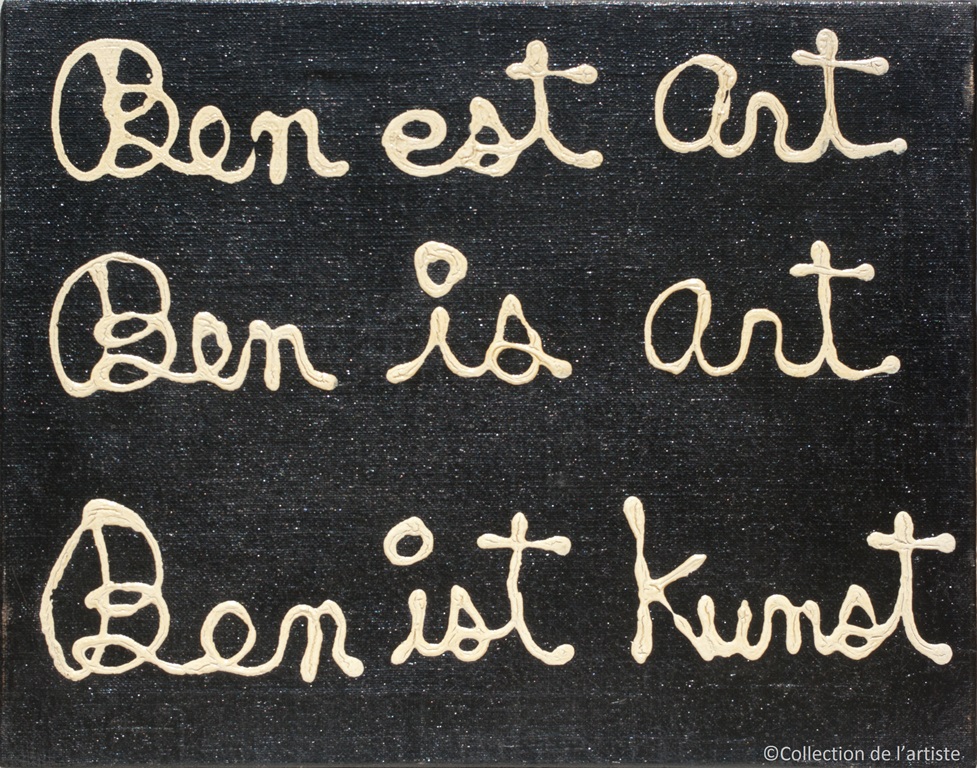 Ben est Art
Ben is art
Ben ist kunst
©Collection de l'artiste